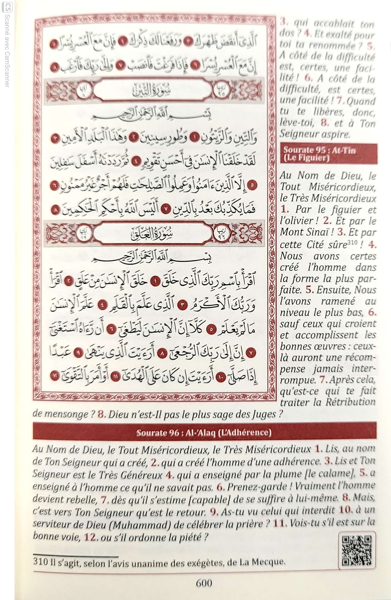 CS Scanné avec CamScanner
الَّذِي أَنقَضَ ظَهْرَكَ ٣ وَرَفَعْنَا لَكَ ذِكْرَكَ ٤ فَإِنَّ مَعَ الْعُسْرِ يُسْرًا
٥ إِنَّ مَعَ الْعُسْرِ يُسْرًا ٦ فَإِذَا فَرَغْتَ فَانصَبْ ٧ وَإِلَىٰ رَبِّكَ فَارْغَب ٨
سُورَةُ التِّينِ
بِسْمِ اللَّهِ الرَّحْمَٰنِ الرَّحِيمِ
وَالتِّينِ وَالزَّيْتُونِ ١ وَطُورِ سِينِينَ ٢ وَهَٰذَا الْبَلَدِ الْأَمِينِ ٣
لَقَدْ خَلَقْنَا الْإِنسَانَ فِي أَحْسَنِ تَقْوِيمٍ ٤ ثُمَّ رَدَدْنَاهُ أَسْفَلَ سَافِلِينَ
٥ إِلَّا الَّذِينَ آمَنُوا وَعَمِلُوا الصَّالِحَاتِ فَلَهُمْ أَجْرٌ غَيْرُ مَمْنُونٍ ٦
فَمَا يُكَذِّبُكَ بَعْدُ بِالدِّينِ ٧ أَلَيْسَ اللَّهُ بِأَحْكَمِ الْحَاكِمِينَ ٨
سُورَةُ الْعَلَقِ
بِسْمِ اللَّهِ الرَّحْمَٰنِ الرَّحِيمِ
اقْرَأْ بِاسْمِ رَبِّكَ الَّذِي خَلَقَ ١ خَلَقَ الْإِنسَانَ مِنْ عَلَقٍ ٢ اقْرَأْ
وَرَبُّكَ الْأَكْرَمُ ٣ الَّذِي عَلَّمَ بِالْقَلَمِ ٤ عَلَّمَ الْإِنسَانَ
مَا لَمْ يَعْلَمْ ٥ كَلَّا إِنَّ الْإِنسَانَ لَيَطْغَىٰ ٦ أَن رَّآهُ اسْتَغْنَىٰ
٧ إِنَّ إِلَىٰ رَبِّكَ الرُّجْعَىٰ ٨ أَرَأَيْتَ الَّذِي يَنْهَىٰ ٩ عَبْدًا
إِذَا صَلَّىٰ ١٠ أَرَأَيْتَ إِن كَانَ عَلَى الْهُدَىٰ ١١ أَوْ أَمَرَ بِالتَّقْوَىٰ ١٢
3. qui accablait ton
dos ? 4. Et exalté pour
toi ta renommée ? 5.
À côté de la difficulté
est, certes, une faci-
lité ! 6. A côté de la
difficulté, est certes,
une facilité ! 7. Quand
tu te libères, donc,
lève-toi, 8. et à Ton
Seigneur aspire.
Sourate 95 : At-Tin
(Le Figuier)
Au Nom de Dieu, le
Tout Miséricordieux,
le Très Miséricordieux
1. Par le figuier et
l'olivier ! 2. Et par le
Mont Sinaï ! 3. Et par
cette Cité sûre310 ! 4.
Nous avons certes
créé l'homme dans
la forme la plus par-
faite. 5. Ensuite, Nous
l'avons ramené au
niveau le plus bas, 6.
sauf ceux qui croient
et accomplissent les
bonnes œuvres : ceux-
là auront une récom-
pense jamais inter-
rompue. 7. Après cela,
qu'est-ce qui te fait
traiter la Rétribution
de mensonge ? 8. Dieu n'est-Il pas le plus sage des Juges ?
Sourate 96 : Al-'Alaq (L'Adhérence)
Au Nom de Dieu, le Tout Miséricordieux, le Très Miséricordieux 1. Lis, au nom
de Ton Seigneur qui a créé, 2. qui a créé l'homme d'une adhérence. 3. Lis et Ton
Seigneur est le Très Généreux 4. qui a enseigné par la plume [le calame], 5. a
enseigné à l'homme ce qu'il ne savait pas. 6. Prenez-garde ! Vraiment l'homme
devient rebelle, 7. dès qu'il s'estime [capable] de se suffire à lui-même. 8. Mais,
c'est vers Ton Seigneur qu'est le retour. 9. As-tu vu celui qui interdit 10. à un
serviteur de Dieu (Muhammad) de célébrer la prière ? 11. Vois-tu s'il est sur la
bonne voie, 12. ou s'il ordonne la piété ?
310 Il s'agit, selon l'avis unanime des exégètes, de La Mecque.
600